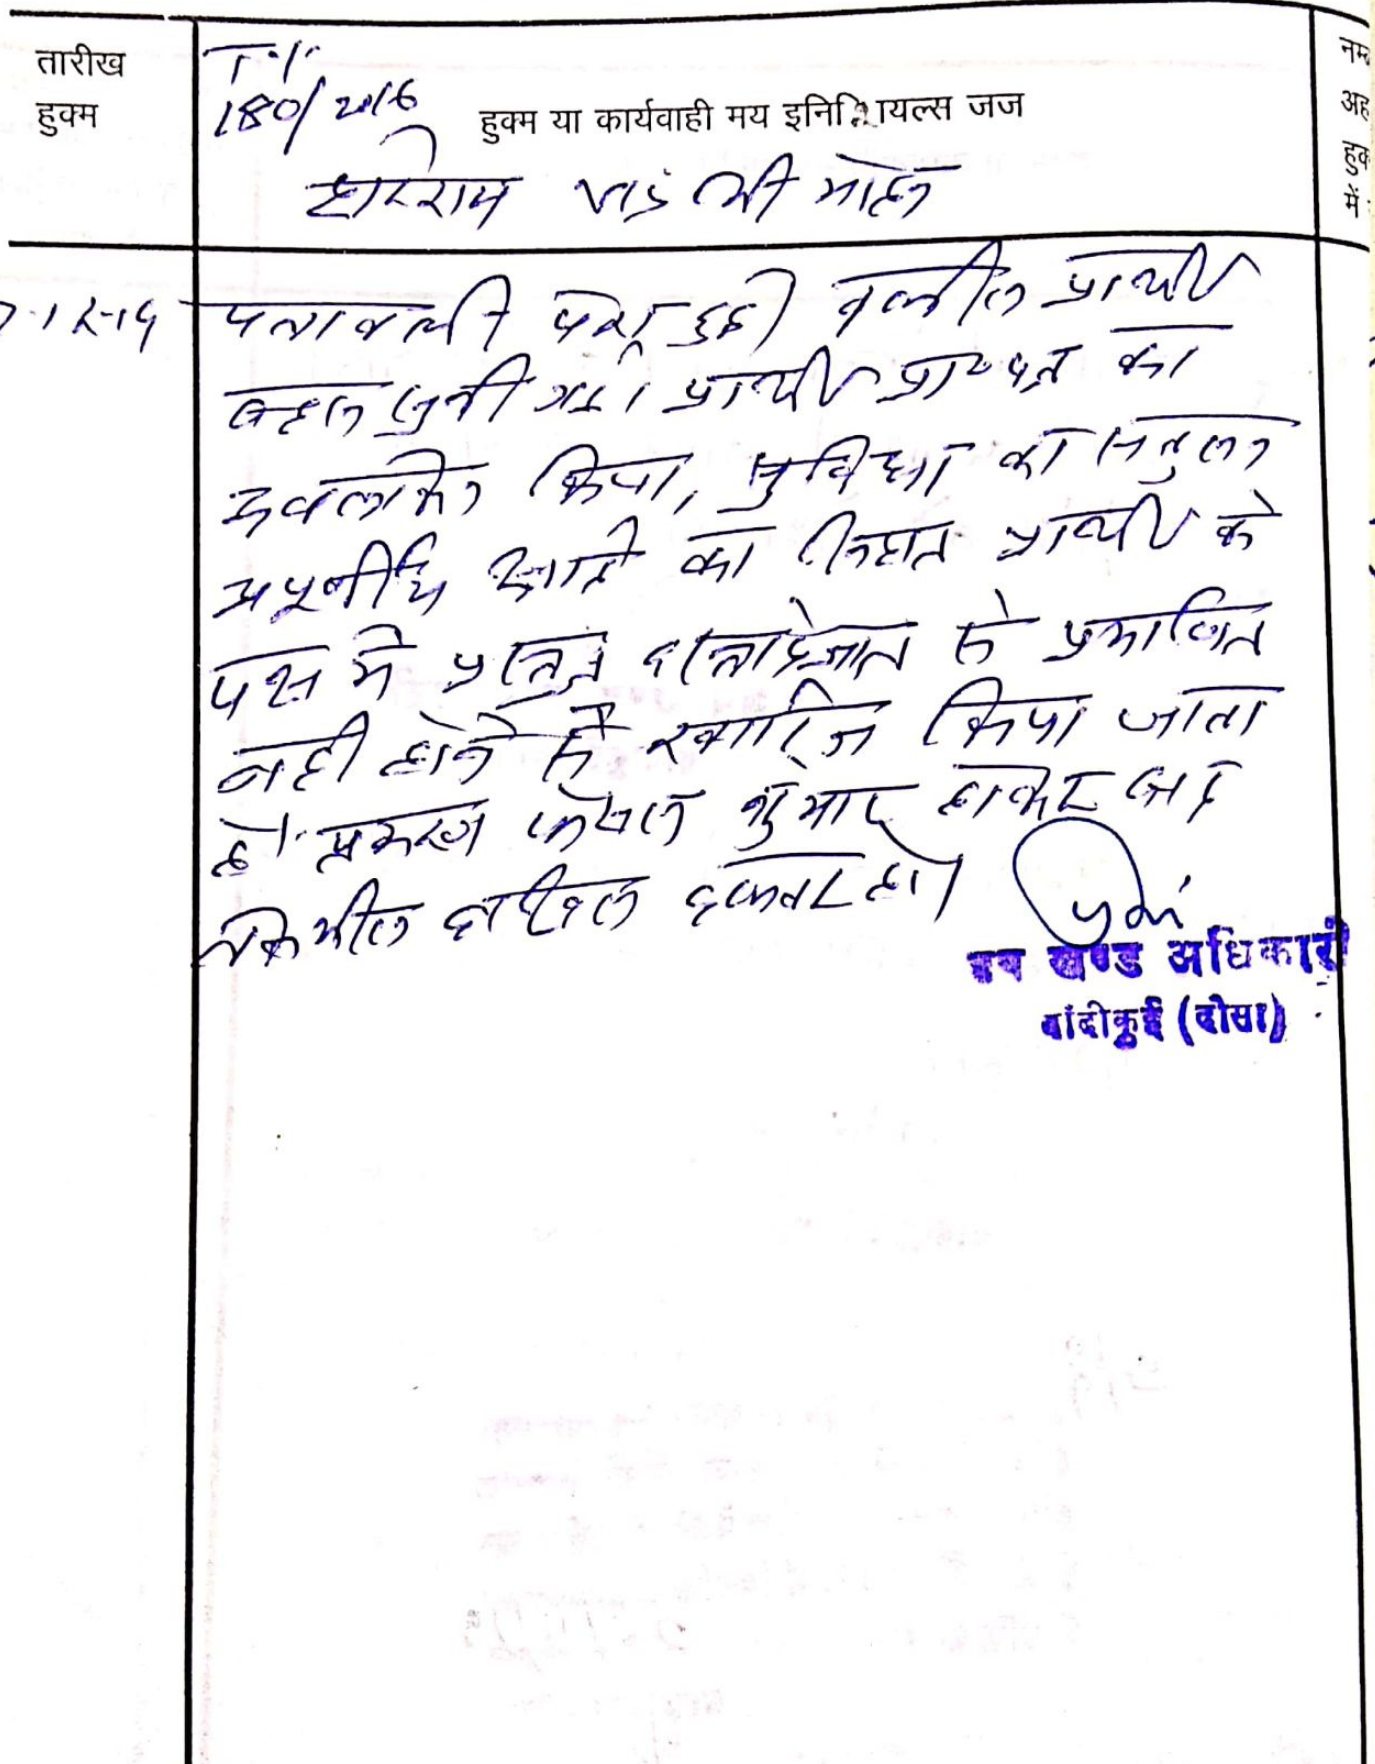 तारीख
हुक्म
T.I.
180/2016
हुक्म या कार्यवाही मय इनिशियल्स जज
हरिराम श्री मोहन
नम्ब
अह
हुक
में
पत्रावली पेश हुई। वकील प्रार्थी
बहस सुनी गई। प्रार्थी प्रा०पत्र का
अवलोकन किया, सुविधा का संतुलन
अपूर्णीय क्षति का प्रार्थी के
पक्ष में प्रस्तुत दस्तावेजात से प्रमाणित
नही होने से खारिज किया जाता
है। प्रकरण फैसल शुमार होकर बाद
तकमील दाखिल दफ्तर हो।
उप खण्ड अधिकारी
बांदीकुई (दौसा)